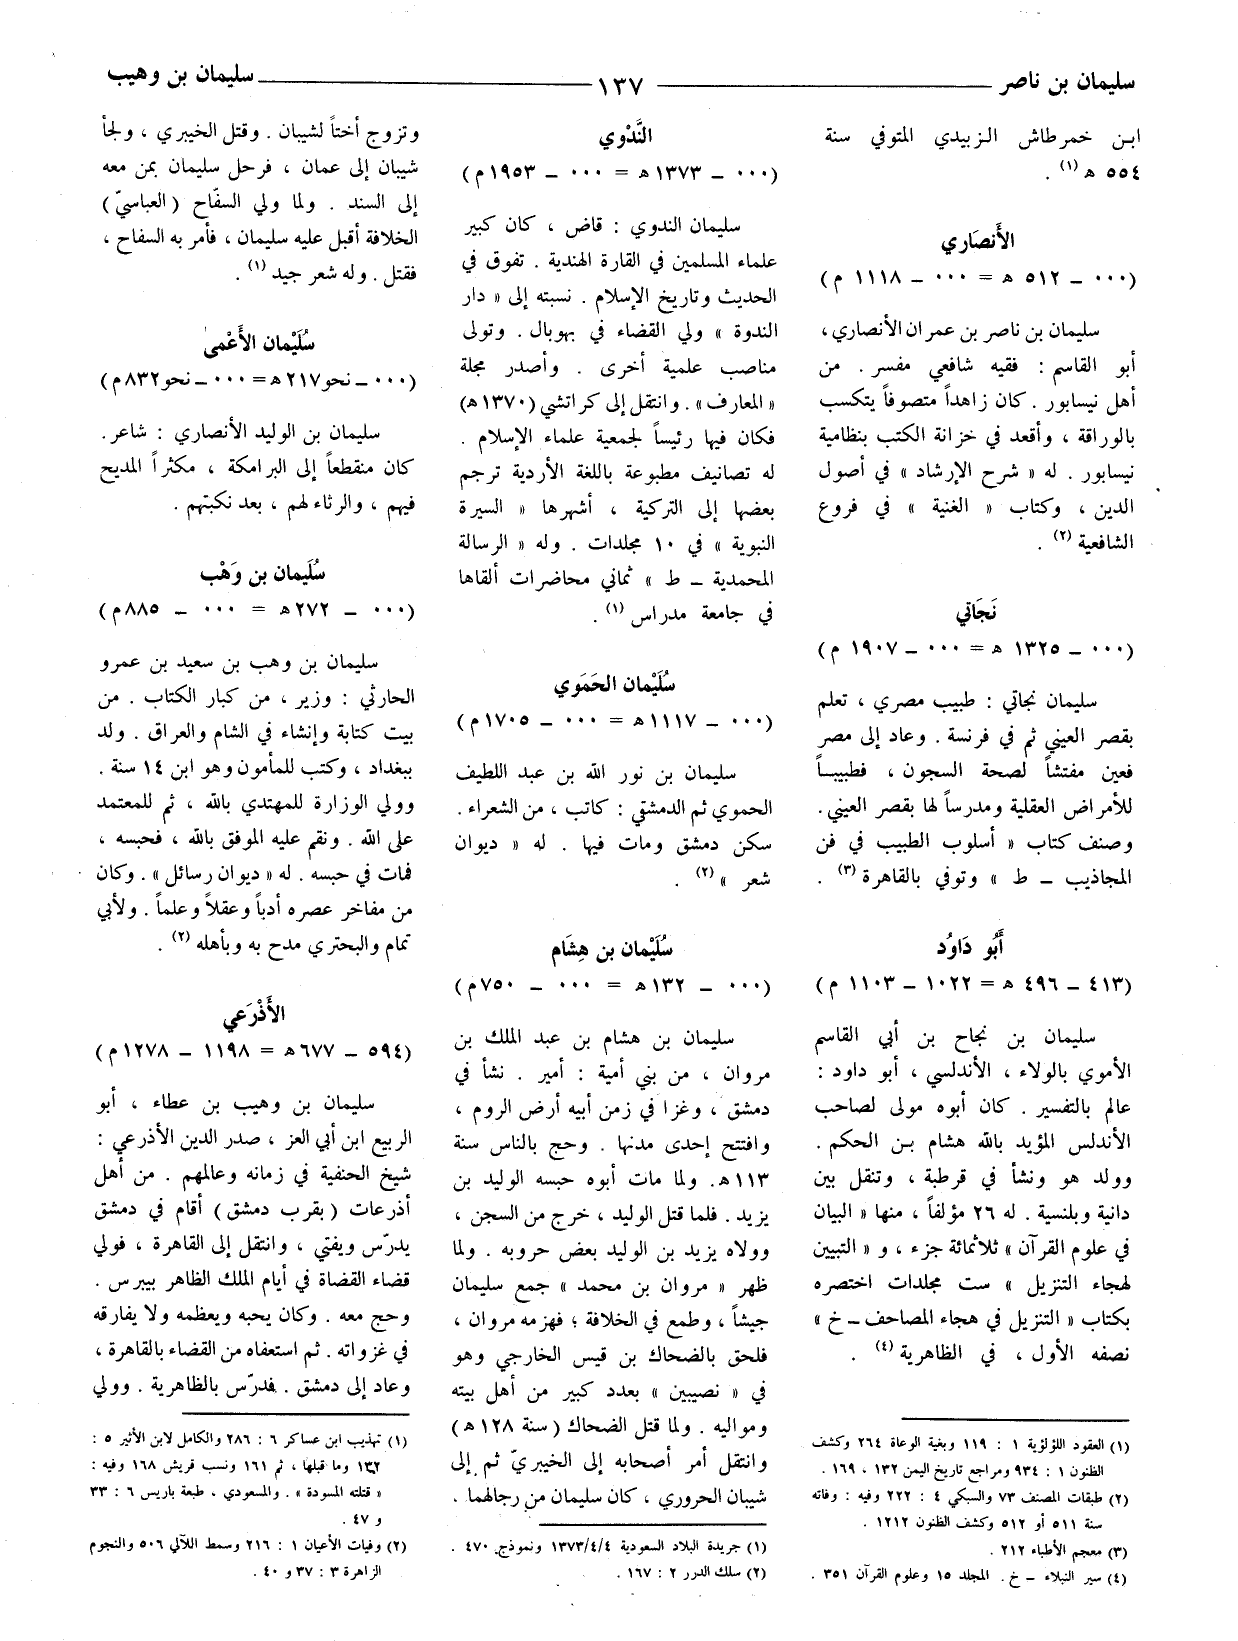 سليمان بن ناصر
١٣٧
سليمان بن وهيب
ابن خمرطاش الزبيدي المتوفي سنة
٥٥٤ ه (١) .
الأَنصَاري
(٠٠٠ ــ ٥١٢ ه = ٠٠٠ ــ ١١١٨ م)
سليمان بن ناصر بن عمران الأنصاري ،
أبو القاسم : فقيه شافعي مفسر . من
أهل نيسابور . كان زاهداً متصوفاً يتكسب
بالوراقة ، وأقعد في خزانة الكتب بنظامية
نيسابور . له « شرح الإرشاد » في أصول
الدين ، وكتاب « الغنية » في فروع
الشافعية (٢) .
نَجَاتي
(٠٠٠ ــ ١٣٢٥ ه = ٠٠٠ ــ ١٩٠٧ م)
سليمان نجاتي : طبيب مصري ، تعلم
بقصر العيني ثم في فرنسة . وعاد إلى مصر
فعين مفتشاً لصحة السجون ، فطبيباً
للأمراض العقلية ومدرساً لها بقصر العيني .
وصنف كتاب « أسلوب الطبيب في فن
المجاذيب ــ ط » وتوفي بالقاهرة (٣) .
أَبُو دَاوُد
(٤١٣ ــ ٤٩٦ ه = ١٠٢٢ ــ ١١٠٣ م)
سليمان بن نجاح بن أبي القاسم
الأموي بالولاء ، الأندلسي ، أبو داود :
عالم بالتفسير . كان أبوه مولى لصاحب
الأندلس المؤيد بالله هشام بن الحكم .
وولد هو ونشأ في قرطبة ، وتنقل بين
دانية وبلنسية . له ٢٦ مؤلفاً ، منها « البيان
في علوم القرآن » ثلاثمائة جزء ، و « التبيين
لهجاء التنزيل » ست مجلدات اختصره
بكتاب « التنزيل في هجاء المصاحف ــ خ »
نصفه الأول ، في الظاهرية (٤) .
(١) العقود اللؤلؤية ١ : ١١٩ وبغية الوعاة ٢٦٤ وكشف
الظنون ١ : ٩٣٤ ومراجع تاريخ اليمن ١٣٢ ، ١٦٩ .
(٢) طبقات المصنف ٧٣ والسبكي ٤ : ٢٢٢ وفيه : وفاته
سنة ٥١١ أو ٥١٢ وكشف الظنون ١٢١٢ .
(٣) معجم الأطباء ٢١٢ .
(٤) سير النبلاء ــ خ . المجلد ١٥ وعلوم القرآن ٣٥١ .
النَّدْوي
(٠٠٠ ــ ١٣٧٣ه = ٠٠٠ ــ ١٩٥٣م)
سليمان الندوي : قاض ، كان كبير
علماء المسلمين في القارة الهندية . تفوق في
الحديث وتاريخ الإسلام . نسبته إلى « دار
الندوة » ولي القضاء في بهوبال . وتولى
مناصب علمية أخرى . وأصدر مجلة
« المعارف » . وانتقل إلى كراتشي (١٣٧٠ه)
فكان فيها رئيساً لجمعية علماء الإسلام .
له تصانيف مطبوعة باللغة الأردية ترجم
بعضها إلى التركية ، أشهرها « السيرة
النبوية » في ١٠ مجلدات . وله « الرسالة
المحمدية ــ ط » ثماني محاضرات ألقاها
في جامعة مدراس (١) .
سُلَيْمان الحَمَوي
(٠٠٠ ــ ١١١٧ه = ٠٠٠ ــ ١٧٠٥م)
سليمان بن نور الله بن عبد اللطيف
الحموي ثم الدمشقي : كاتب ، من الشعراء .
سكن دمشق ومات فيها . له « ديوان
شعر » (٢) .
سُلَيْمان بن هِشَام
(٠٠٠ ــ ١٣٢ه = ٠٠٠ ــ ٧٥٠م)
سليمان بن هشام بن عبد الملك بن
مروان ، من بني أمية : أمير . نشأ في
دمشق ، وغزا في زمن أبيه أرض الروم ،
وافتتح إحدى مدنها . وحج بالناس سنة
١١٣ه . ولما مات أبوه حبسه الوليد بن
يزيد . فلما قتل الوليد ، خرج من السجن ،
وولاه يزيد بن الوليد بعض حروبه . ولما
ظهر « مروان بن محمد » جمع سليمان
جيشاً ، وطمع في الخلافة ؛ فهزمه مروان ،
فلحق بالضحاك بن قيس الخارجي وهو
في « نصيبين » بعدد كبير من أهل بيته
ومواليه . ولما قتل الضحاك (سنة ١٢٨ ه)
وانتقل أمر أصحابه إلى الخيبريّ ثم إلى
شيبان الحروري ، كان سليمان من رجالهما .
(١) جريدة البلاد السعودية ١٣٧٣/٤/٤ ونموذج ٤٧٠ .
(٢) سلك الدرر ٢ : ١٦٧ .
وتزوج أختاً لشيبان . وقتل الخيبري ، ولجأ
شيبان إلى عمان ، فرحل سليمان بمن معه
إلى السند . ولما ولي السفّاح (العباسيّ)
الخلافة أقبل عليه سليمان ، فأمر به السفاح ،
فقتل . وله شعر جيد (١) .
سُلَيْمان الأَعْمىٰ
(٠٠٠ ــ نحو ٢١٧ه = ٠٠٠ ــ نحو ٨٣٢م)
سليمان بن الوليد الأنصاري : شاعر .
كان منقطعاً إلى البرامكة ، مكثراً المديح
فيهم ، والرثاء لهم ، بعد نكبتهم .
سُلَيمان بن وَهْب
(٠٠٠ ــ ٢٧٢ه = ٠٠٠ ــ ٨٨٥م)
سليمان بن وهب بن سعيد بن عمرو
الحارثي : وزير ، من كبار الكتاب . من
بيت كتابة وإنشاء في الشام والعراق . ولد
ببغداد ، وكتب للمأمون وهو ابن ١٤ سنة .
وولي الوزارة للمهتدي بالله ، ثم للمعتمد
على الله . ونقم عليه الموفق بالله ، فحبسه ،
فمات في حبسه . له « ديوان رسائل » . وكان
من مفاخر عصره أدباً وعقلاً وعلماً . ولأبي
تمام والبحتري مدح به وبأهله (٢) .
الأَذْرَعي
(٥٩٤ ــ ٦٧٧ه = ١١٩٨ ــ ١٢٧٨م)
سليمان بن وهيب بن عطاء ، أبو
الربيع ابن أبي العز ، صدر الدين الأذرعي :
شيخ الحنفية في زمانه وعالمهم . من أهل
أذرعات (بقرب دمشق) أقام في دمشق
يدرّس ويفتي ، وانتقل إلى القاهرة ، فولي
قضاء القضاة في أيام الملك الظاهر بيبرس .
وحج معه . وكان يحبه ويعظمه ولا يفارقه
في غزواته . ثم استعفاه من القضاء بالقاهرة ،
وعاد إلى دمشق . فدرّس بالظاهرية . وولي
(١) تهذيب ابن عساكر ٦ : ٢٨٦ والكامل لابن الأثير ٥ :
١٣٢ وما قبلها ، ثم ١٦١ ونسب قريش ١٦٨ وفيه :
« قتلته المسودة » . والمسعودي ، طبعة باريس ٦ : ٣٣
و ٤٧ .
(٢) وفيات الأعيان ١ : ٢١٦ وسمط اللآلي ٥٠٦ والنجوم
الزاهرة ٣ : ٣٧ و ٤٠ .